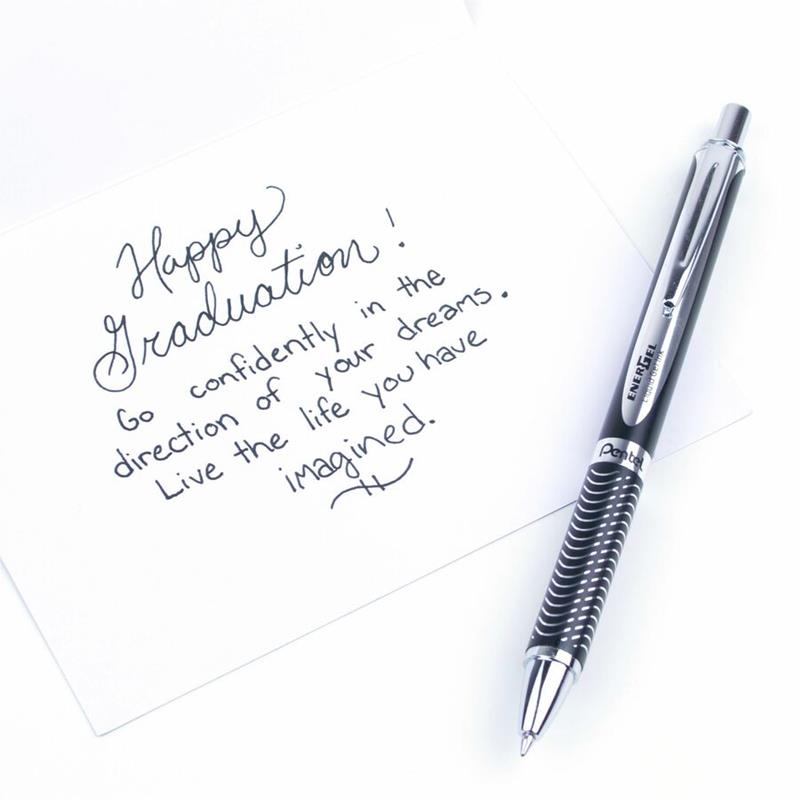 Happy
Graduation!
Go confidently in the
direction of your dreams.
Live the life you have
imagined.
ENERGEL
Liquid Gel Ink
Pentel